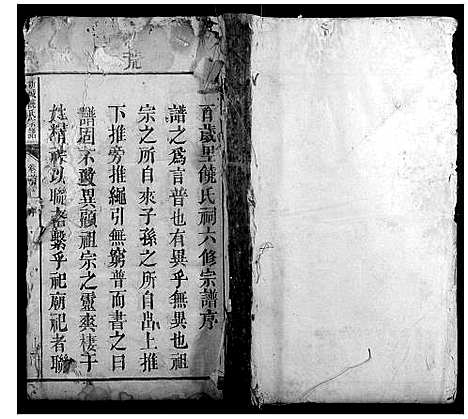 百歲里饒氏祠六修宗譜序
譜之爲言普也有異乎無異也祖
宗之所自來子孫之所自出上推
下推旁推繩引無窮普而書之曰
譜固不敢異顧祖宗之靈爽棲于
姓精祿以聯者繫乎祀廟祀者聯
饒氏宗譜